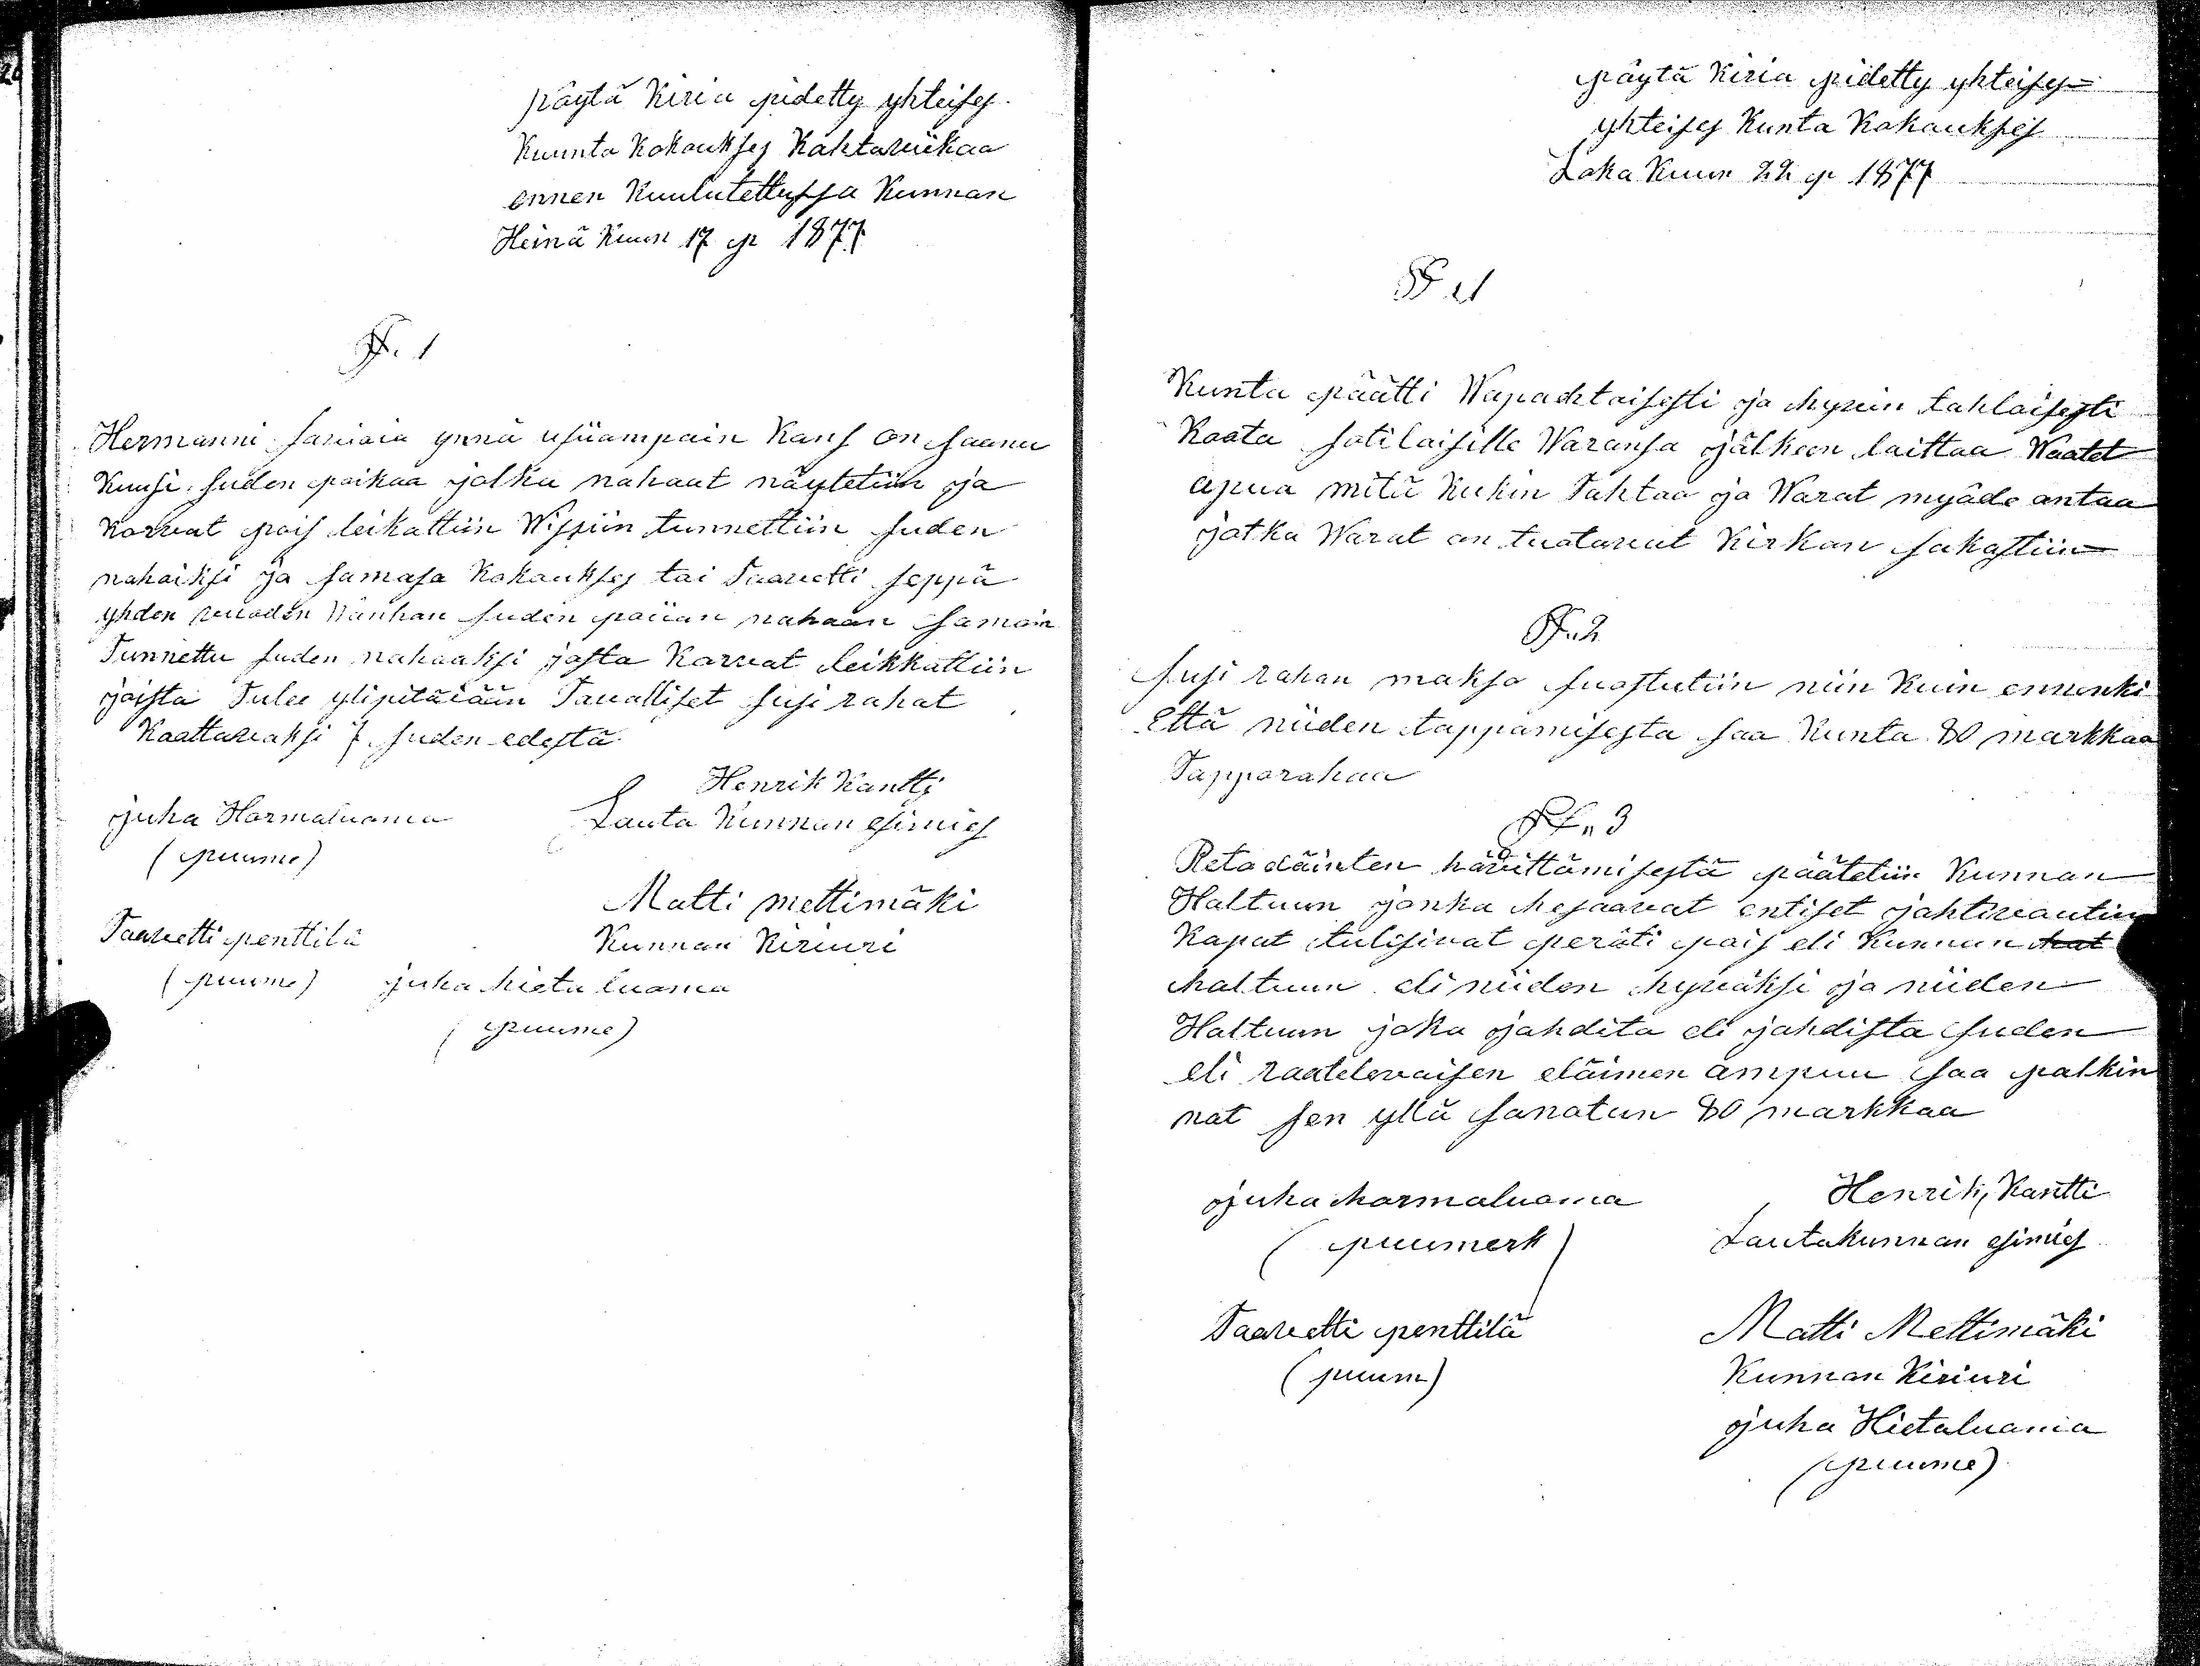 pöytä Kiria pidetty yhteises
Kuunta Kokoukses Kahtaviikaa
ennen Kuulutettussa Kunnan
Heinä Kuun 17 p 1877
§. 1
Hermanni ynnä usiampain Kans on saanu
Kuusi suden poikaa jolka nahaat näytetiin ja
Korvat pois leikattiin Wissiin tunnettiin suden
nahaiksi ja samasa Kokoukses toi Taavetti seppä
yhden vuoden Wanhan suden poiian nahaan samoin
Tunnettu suden nahaaksi josta Korvat leikkattiin
joista Tulee ylipitäiään Tavalliset susi rahat
Kaattavaksi 7 suden edestä
Henrik Kantti
juha Harmaluoma Lauta Kunnan esimies
(puume)
Matti mettimäki
Taavetti penttilä Kunnan Kiriuri
(puume) juha hieta luoma
(puume)
26
pöytä Kiria pidetty yhteises=
yhteises Kunta Kokoukses
Loka Kuun 22 p 1877
§ 1
Kunta päätti Wapachtoisesti ja hyvin tahtoisesti
Koota sotilaisille Waransa jälkeen laittaa Waatet
apua mitä Kukin Tahtoo ja Warat myöde antaa
jotka Warat on tuotavat Kirkon sakastiin
§. 2
susi rahan makso suostutiin niin Kuin ennenki
Että niiden tappamisesta saa Kunta 80 markkaa
Tapporahaa
§. 3
Petoeäinten hävittämisestä päätetiin Kunnan
Haltuun jonka hesaavat entiset jahtivoutin
Kapat tulisivat peräti pois eli Kunnan hat
haltuun eli niiden hyväksi ja niiden
Haltuun joka jahdita eli jahdista suden
eli raatelevaisen eläimen ampuu saa palkin
not sen yllä sanotun 80 markkaa
juha harmaluoma Henrik Kantti
(puumerk) Lautakunnan esimies
Taavetti penttilä Matti Mettimäki
(puum) Kunnan Kiriuri
juha Hietaluoma
(puume)